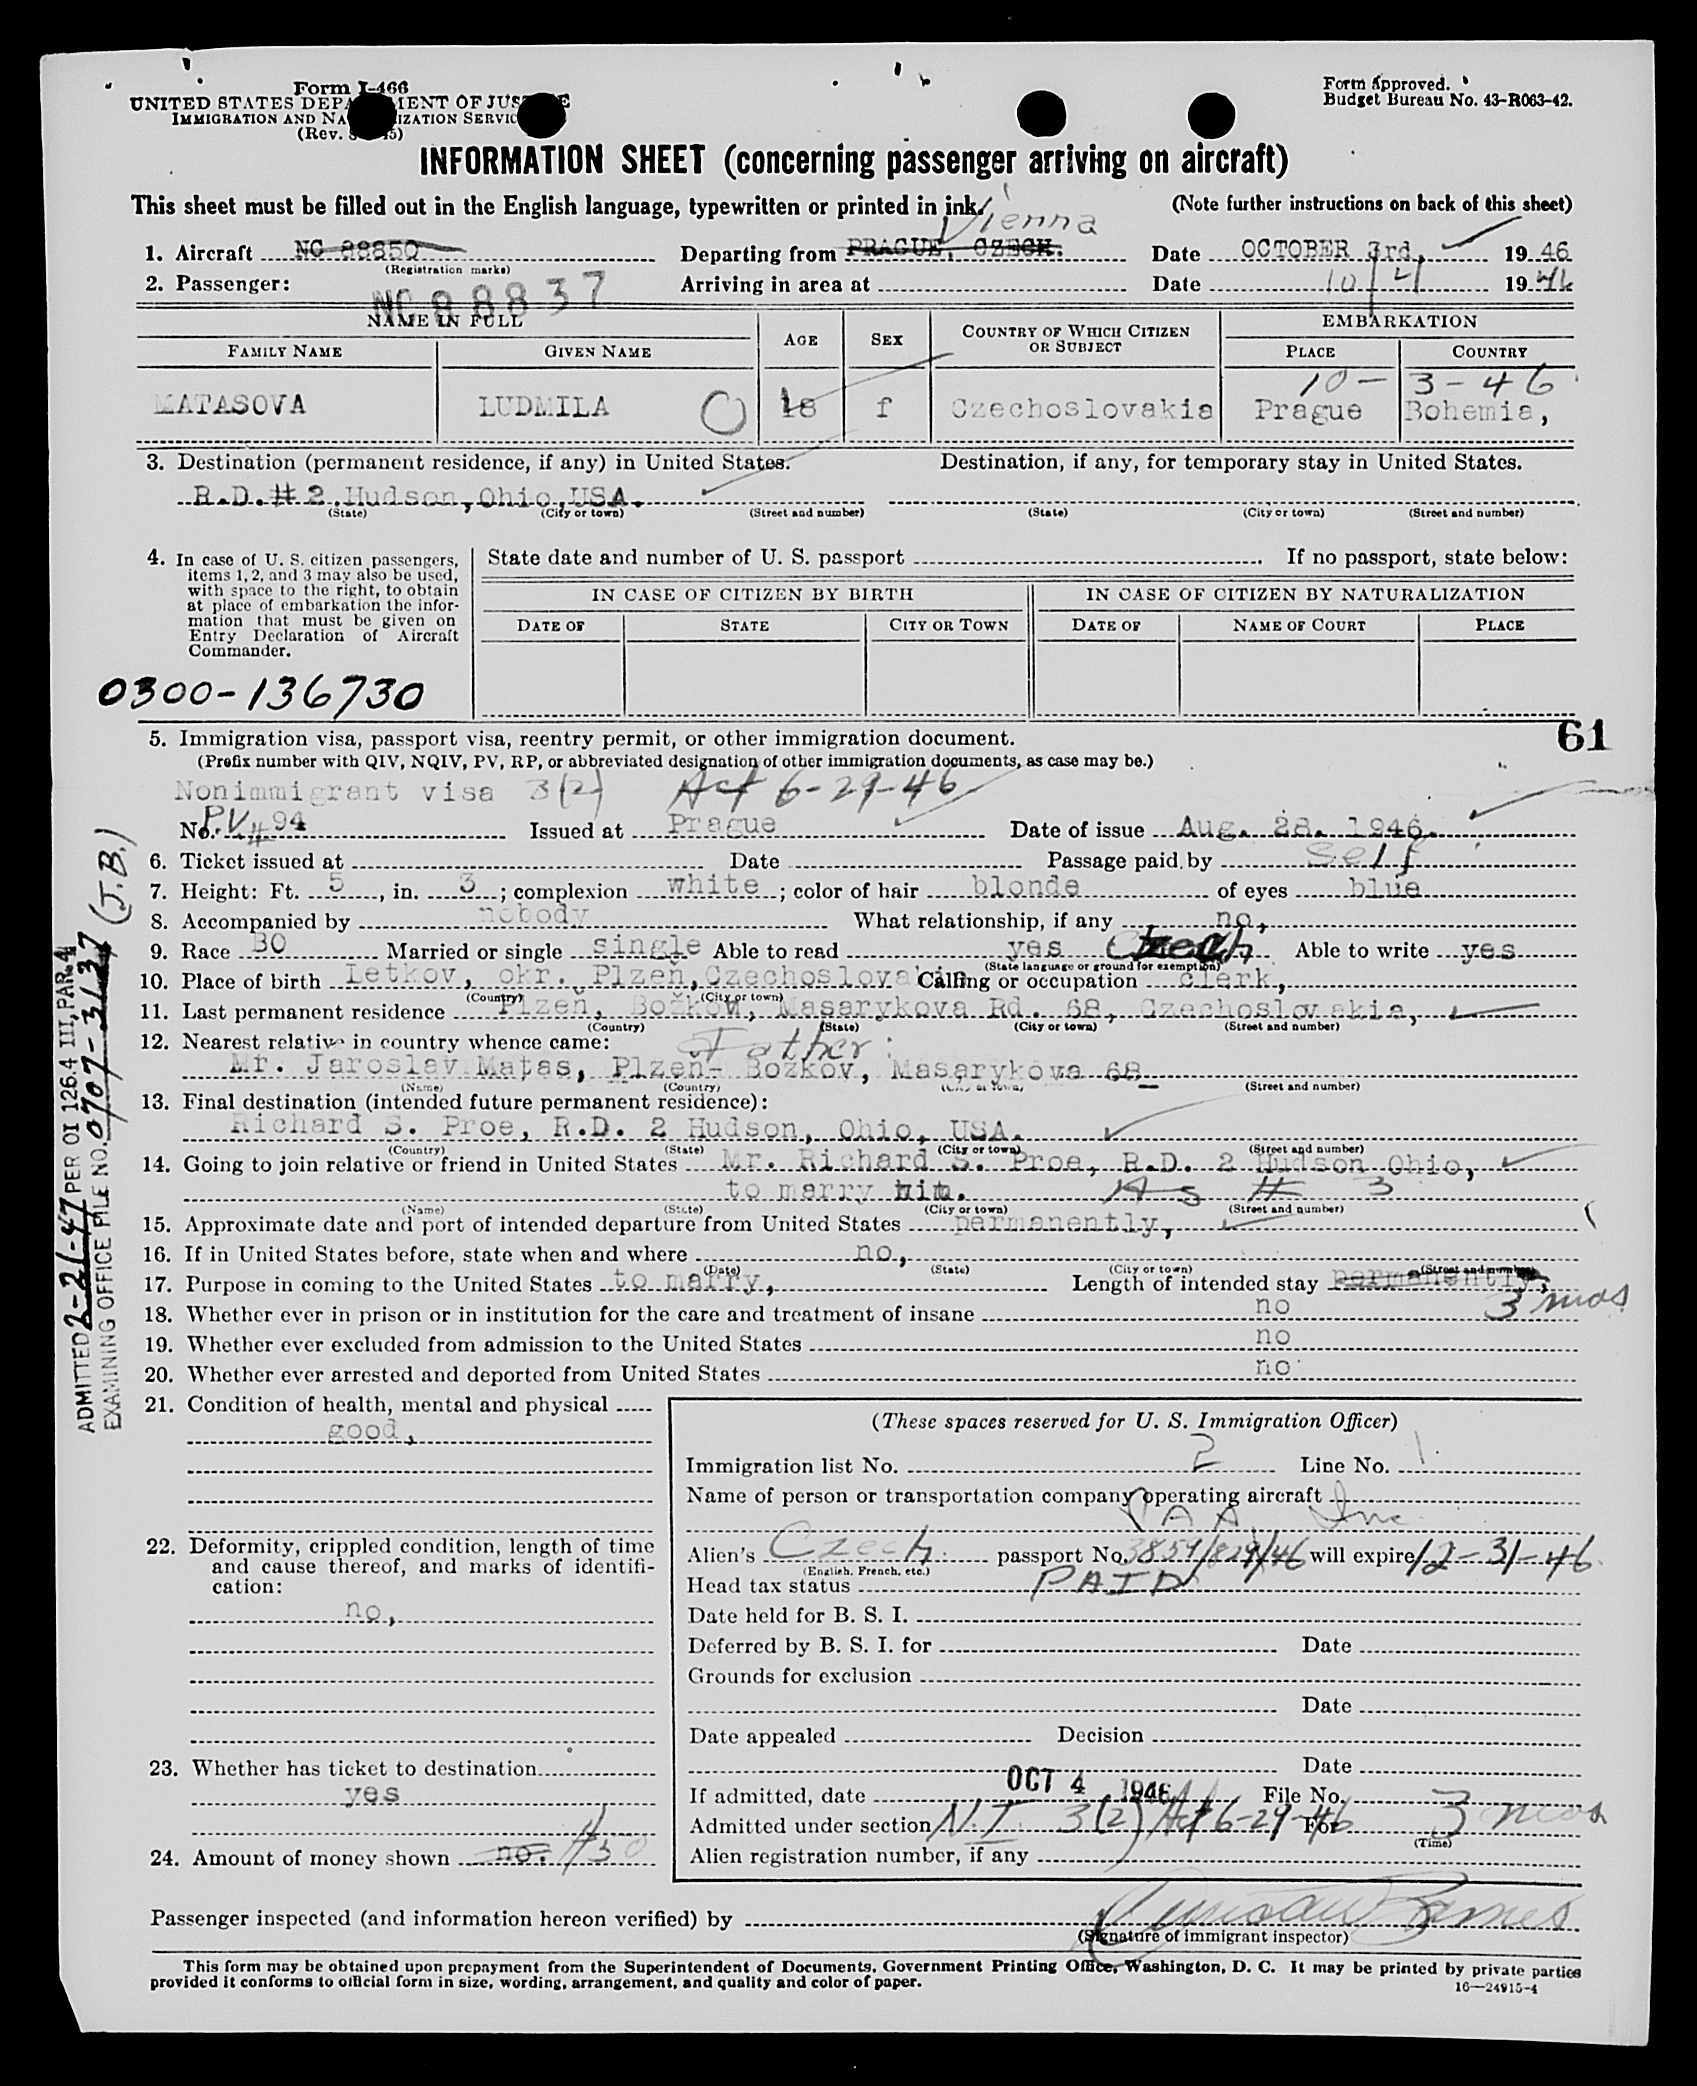 Form I-466
UNITED STATES DEPARTMENT OF JUSTICE
IMMIGRATION AND NATURALIZATION SERVICE
(Rev.
Form Approved.
Budget Bureau No. 43-R063-42.
INFORMATION SHEET (concerning passenger arriving on aircraft)
This sheet must be filled out in the English language, typewritten or printed in ink.
(Note further instructions on back of this sheet)
Vienna
1. Aircraft NC 88850 Departing from PRAGUE, CZECH. Date OCTOBER 3rd, 1946
(Registration marks)
2. Passenger: NC 88837 Arriving in area at Date 10/4 1946
NAME IN FULL AGE SEX COUNTRY OF WHICH CITIZEN OR SUBJECT EMBARKATION
FAMILY NAME GIVEN NAME PLACE COUNTRY
10-3-46
MATASOVA LUDMILA 18 f Czechoslovakia Prague Bohemia,
3. Destination (permanent residence, if any) in United States. Destination, if any, for temporary stay in United States.
R.D.# 2,Hudson,Ohio,USA.
(State) (City or town) (Street and number) (State) (City or town) (Street and number)
4. In case of U. S. citizen passengers,
items 1, 2, and 3 may also be used,
with space to the right, to obtain
at place of embarkation the infor-
mation that must be given on
Entry Declaration of Aircraft
Commander.
State date and number of U. S. passport If no passport, state below:
IN CASE OF CITIZEN BY BIRTH IN CASE OF CITIZEN BY NATURALIZATION
DATE OF STATE CITY OR TOWN DATE OF NAME OF COURT PLACE
0300-136730
61
5. Immigration visa, passport visa, reentry permit, or other immigration document.
(Prefix number with QIV, NQIV, PV, RP, or abbreviated designation of other immigration documents, as case may be.)
Nonimmigrant visa 3(2) Act 6-29-46
No. PV # 94 Issued at Prague Date of issue Aug. 28. 1946.
6. Ticket issued at Date Passage paid by Self
7. Height: Ft. 5, in. 3; complexion white; color of hair blonde of eyes blue
8. Accompanied by nobody What relationship, if any no,
9. Race BO Married or single single Able to read yes Czech Able to write yes
(State language or ground for exemption)
10. Place of birth Letkov, okr. Plzeň, Czechoslovakia Calling or occupation clerk,
(Country) (City or town)
11. Last permanent residence Plzeň, Božkov, Masarykova Rd. 68, Czechoslovakia,
(Country) (State) (City or town) (Street and number)
12. Nearest relative in country whence came: Father:
Mr. Jaroslav Matas, Plzen- Bozkov, Masarykova 68
(Name) (Country) (City or town) (Street and number)
13. Final destination (intended future permanent residence):
Richard S. Proe, R.D. 2 Hudson, Ohio, USA.
(Country) (State) (City or town) (Street and number)
14. Going to join relative or friend in United States Mr. Richard S. Proe, R.D. 2 Hudson Ohio,
to marry him. As # 3
(Name) (State) (City or town) (Street and number)
15. Approximate date and port of intended departure from United States permanently,
16. If in United States before, state when and where no,
(Date) (State) (City or town) (Street and number)
17. Purpose in coming to the United States to marry, Length of intended stay permanently,
3 mos
18. Whether ever in prison or in institution for the care and treatment of insane no
19. Whether ever excluded from admission to the United States no
20. Whether ever arrested and deported from United States no
21. Condition of health, mental and physical
good,
22. Deformity, crippled condition, length of time
and cause thereof, and marks of identifi-
cation:
no,
23. Whether has ticket to destination
yes
24. Amount of money shown no. $50
(These spaces reserved for U. S. Immigration Officer)
Immigration list No. 2 Line No. 1
Name of person or transportation company operating aircraft
PAA Inc.
Alien's Czech passport No. 3859/829/46 will expire 12-31-46
(English, French, etc.)
Head tax status PAID
Date held for B. S. I.
Deferred by B. S. I. for Date
Grounds for exclusion
Date
Date appealed Decision
Date
If admitted, date OCT 4 1946 File No.
Admitted under section N.I. 3(2) Act 6-29-46 For 3 mos
(Time)
Alien registration number, if any
Passenger inspected (and information hereon verified) by
(Signature of immigrant inspector)
This form may be obtained upon prepayment from the Superintendent of Documents, Government Printing Office, Washington, D. C. It may be printed by private parties
provided it conforms to official form in size, wording, arrangement, and quality and color of paper.
16—24915-4
ADMITTED 2-21-47 PER OI 126.4 III, PAR. 4
EXAMINING OFFICE FILE NO. 0707-3137 (J.B.)